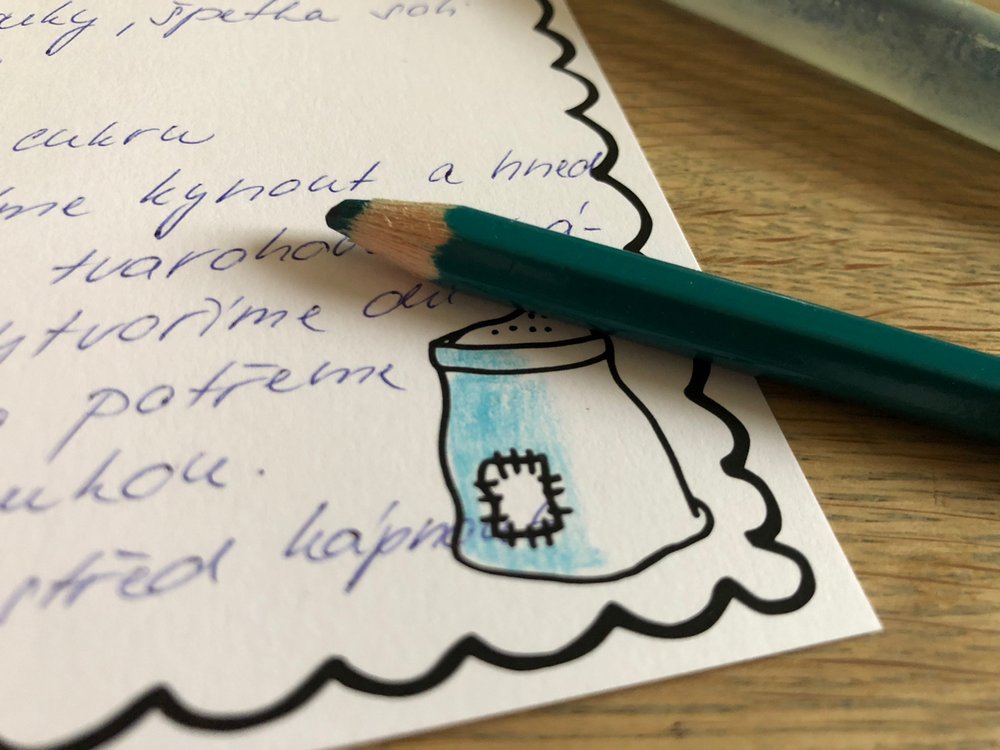 uky, špetka soli
cukru
me kynout a hned
tvaroho á-
ytvoříme dů
potřeme
ukou.
střed kápnout